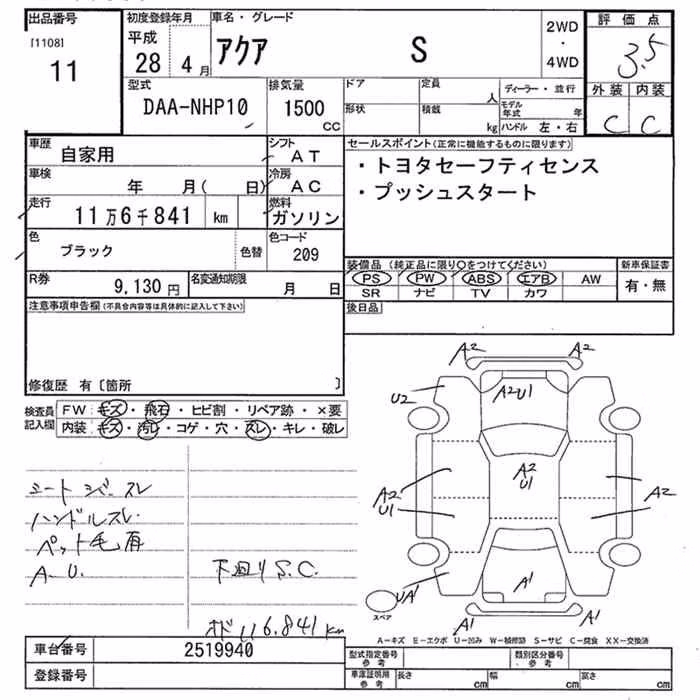 出品番号 初度登録年月 車名・グレード 2WD ・ 4WD 評価点
[1108] 11 平成 28 4月 アクア S 3.5
型式 排気量 ドア 定員 人 ディーラー・並行 外装 内装
DAA-NHP10 1500 CC 形状 積載 kg モデル年式 年 ハンドル 左・右 C C
車歴 自家用 シフト AT セールスポイント(正常に機能するものに限ります)
車検 年 月( 日) 冷房 AC ・トヨタセーフティセンス
走行 11万6千841 km 燃料 ガソリン ・プッシュスタート
色 ブラック 色替 色コード 209
装備品 (純正品に限り○をつけてください) 新車保証書
R券 9,130円 名変通知期限 月 日 PS PW ABS エアB AW 有・無
SR ナビ TV カワ
注意事項申告欄(不具合内容等は具体的に記入して下さい) 後日品
修復歴 有〔箇所 〕
検査員記入欄 FW: キズ・飛石・ヒビ割・リペア跡・×要
内装: キズ・汚レ・コゲ・穴・スレ・キレ・破レ
A2 A2
U2 A2U1
A2 U1 A2 U1 A2
シートシバースレ
ハンドルスレ
ペット毛有
A.U. 下廻りS.C.
UA1 A1
スペア A1 A1
オド 116.841km
A-キズ E-エクボ U-凹み W-補修跡 S-サビ C-腐食 XX-交換済
車台番号 2519940 型式指定番号 参考 類別区分番号 参考
登録番号 車庫証明用 参考 長さ cm 幅 cm 高さ cm